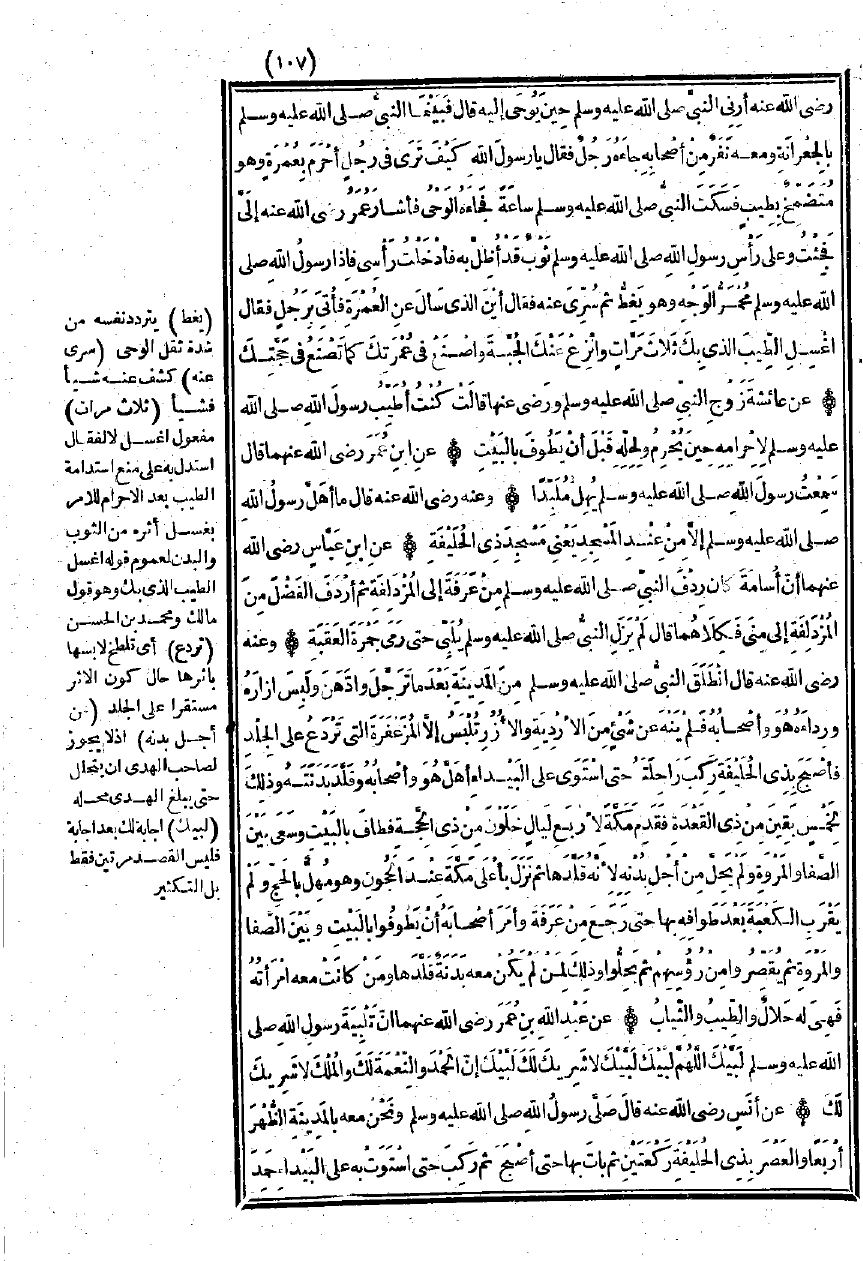 (١٠٧)
رضى الله عنه أرنى النبىَّ صلى الله عليه وسلم حين يُوحَى إليه قال فَبَيْنَمَا النبىُّ صلى الله عليه وسلم
بالجعْرَانَةِ ومعه نَفَرٌ منْ أصْحابه جاءَهُ رَجُلٌ فقال يا رسولَ اللهِ كَيْفَ تَرَى فى رجُلٍ أحْرَمَ بِعُمْرَةٍ وهو
مُتَضَمِّخٌ بِطِيبٍ فَسَكَتَ النبىُّ صلى الله عليه وسلم ساعةً فجاءَهُ الوَحْىُ فأشارَ عمرُ رضى الله عنه إلَىَّ
فَجِئْتُ وعلى رَأْسِ رسولِ اللهِ صلى الله عليه وسلم ثَوْبٌ قَدْ أُظِلَّ به فأدْخَلْتُ رَأْسِى فاذا رسولُ اللهِ صلى
الله عليه وسلم مُحْمَرُّ الوَجْهِ وهو يَغِطُّ ثم سُرِّىَ عنه فقال أيْنَ الذى سَألَ عنِ العُمْرَةِ فأُتِىَ بِرَجُلٍ فقال
اغْسِلِ الطِّيبَ الذى بِكَ ثَلاثَ مَرَّاتٍ وانْزِعْ عَنْكَ الجُبَّةَ واصْنَعْ فى عُمْرَتِكَ كما تَصْنَعُ فى حَجَّتِكَ
۞ عن عائشةَ زَوْجِ النبىِّ صلى الله عليه وسلم ورضى عنها قالتْ كُنْتُ أُطَيِّبُ رسولَ اللهِ صلى الله
عليه وسلم لإحْرامِهِ حينَ يُحْرِمُ ولِحِلِّهِ قَبْلَ أنْ يَطُوفَ بالبَيْتِ ۞ عنِ ابنِ عُمَرَ رضى الله عنهما قال
سَمِعْتُ رسولَ اللهِ صلى الله عليه وسلم يُهِلُّ مُلَبِّدًا ۞ وعنه رضى الله عنه قال ما أهَلَّ رسولُ اللهِ
صلى الله عليه وسلم إلاَّ منْ عِنْدِ المَسْجِدِ يَعْنِى مَسْجِدَ ذى الحُلَيْفَةِ ۞ عنِ ابنِ عَبَّاسٍ رضى الله
عنهما أنَّ أُسامَةَ كان رِدْفَ النبىِّ صلى الله عليه وسلم منْ عَرَفَةَ إلى المُزْدَلِفَةِ ثم أرْدَفَ الفَضْلَ مِنَ
المُزْدَلِفَةِ إلى مِنًى فَكِلَاهُما قال لَمْ يَزَلِ النبىُّ صلى الله عليه وسلم يُلَبِّى حتى رَمَى جَمْرَةَ العَقَبَةِ ۞ وعنه
رضى الله عنه قال انْطَلَقَ النبىُّ صلى الله عليه وسلم مِنَ المَدِينَةِ بَعْدَ ما تَرَجَّلَ وادَّهَنَ ولَبِسَ ازارَهُ
ورِداءَهُ هُوَ وأصْحابُهُ فَلَمْ يَنْهَ عن شَىْءٍ مِنَ الأرْدِيةِ والأُزُرِ تُلْبَسُ إلَّا المُزَعْفَرَةَ التى تَرْدَعُ على الجِلْدِ
فأصْبَحَ بِذِى الحُلَيْفَةِ رَكِبَ رَاحِلَتَهُ حتى اسْتَوَى على البَيْداءِ أهَلَّ هُوَ وأصْحابُهُ وقَلَّدَ بَدَنَتَهُ وذلِكَ
لِخَمْسٍ بَقِينَ مِنْ ذى القَعْدَةِ فَقَدِمَ مَكَّةَ لأرْبَعِ لَيالٍ خَلَوْنَ مِنْ ذى الحِجَّةِ فطافَ بالبَيْتِ وسَعَى بَيْنَ
الصَّفا والمَرْوَةِ ولَمْ يَحِلَّ منْ أجْلِ بُدْنِهِ لأنَّهُ قَلَّدَها ثم نَزَلَ بأعْلَى مَكَّةَ عِنْدَ الحَجُونِ وهو مُهِلٌّ بالحَجِّ ولَمْ
يَقْرَبِ الكَعْبَةَ بَعْدَ طَوافِهِ بها حتى رَجَعَ مِنْ عَرَفَةَ وأمَرَ أصْحابَهُ أنْ يَطُوفُوا بالبَيْتِ وبَيْنَ الصَّفا
والمَرْوَةِ ثم يُقَصِّرُوا مِنْ رُؤُسِهِمْ ثم يَحِلُّوا وذلِكَ لِمَنْ لَمْ يَكُنْ معه بَدَنَةٌ قَلَّدَها ومَنْ كانَتْ معه امْرَأَتُهُ
فَهِىَ له حَلالٌ والطِّيبُ والثِّيابُ ۞ عن عَبْدِ اللهِ بنِ عُمَرَ رضى الله عنهما انَّ تَلْبِيَةَ رسولِ اللهِ صلى
الله عليه وسلم لَبَّيْكَ اللَّهُمَّ لَبَّيْكَ لَبَّيْكَ لا شَرِيكَ لَكَ لَبَّيْكَ إنَّ الحَمْدَ والنِّعْمَةَ لَكَ والمُلْكَ لا شَرِيكَ
لَكَ ۞ عن أنَسٍ رضى الله عنه قال صَلَّى رسولُ اللهِ صلى الله عليه وسلم ونَحْنُ معه بالمَدِينَةِ الظُّهْرَ
أرْبَعًا والعَصْرَ بِذِى الحُلَيْفَةِ رَكْعَتَيْنِ ثم باتَ بها حتى أصْبَحَ ثم رَكِبَ حتى اسْتَوَتْ به على البَيْداءِ حَمِدَ
(يغط) يتردد نفسه من
شدة ثقل الوحى (سرى
عنه) كشف عنه شيأ
فشيأ (ثلاث مرات)
مفعول اغسل لا لفقال
استدل به على منع استدامة
الطيب بعد الاحرام للامر
بغسل أثره من الثوب
والبدن لعموم قوله اغسل
الطيب الذى بك وهو قول
مالك ومحمد بن الحسن
(تردع) أى تلطخ لابسها
بأثرها حال كون الاثر
مستقرا على الجلد (من
أجل بدنه) اذ لا يجوز
لصاحب الهدى ان يتحال
حتى يبلغ الهدى محله
(لبيك) اجابة لك بعد اجابة
فليس القصد مرتين فقط
بل التكثير